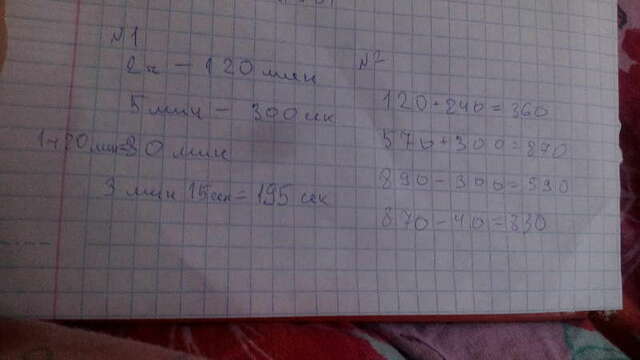 №1
2ч - 120 мин
5 мин - 300 сек
1ч20мин=80 мин
3 мин 15сек=195 сек
№2
120+240=360
570+300=870
890-300=590
870-40=830